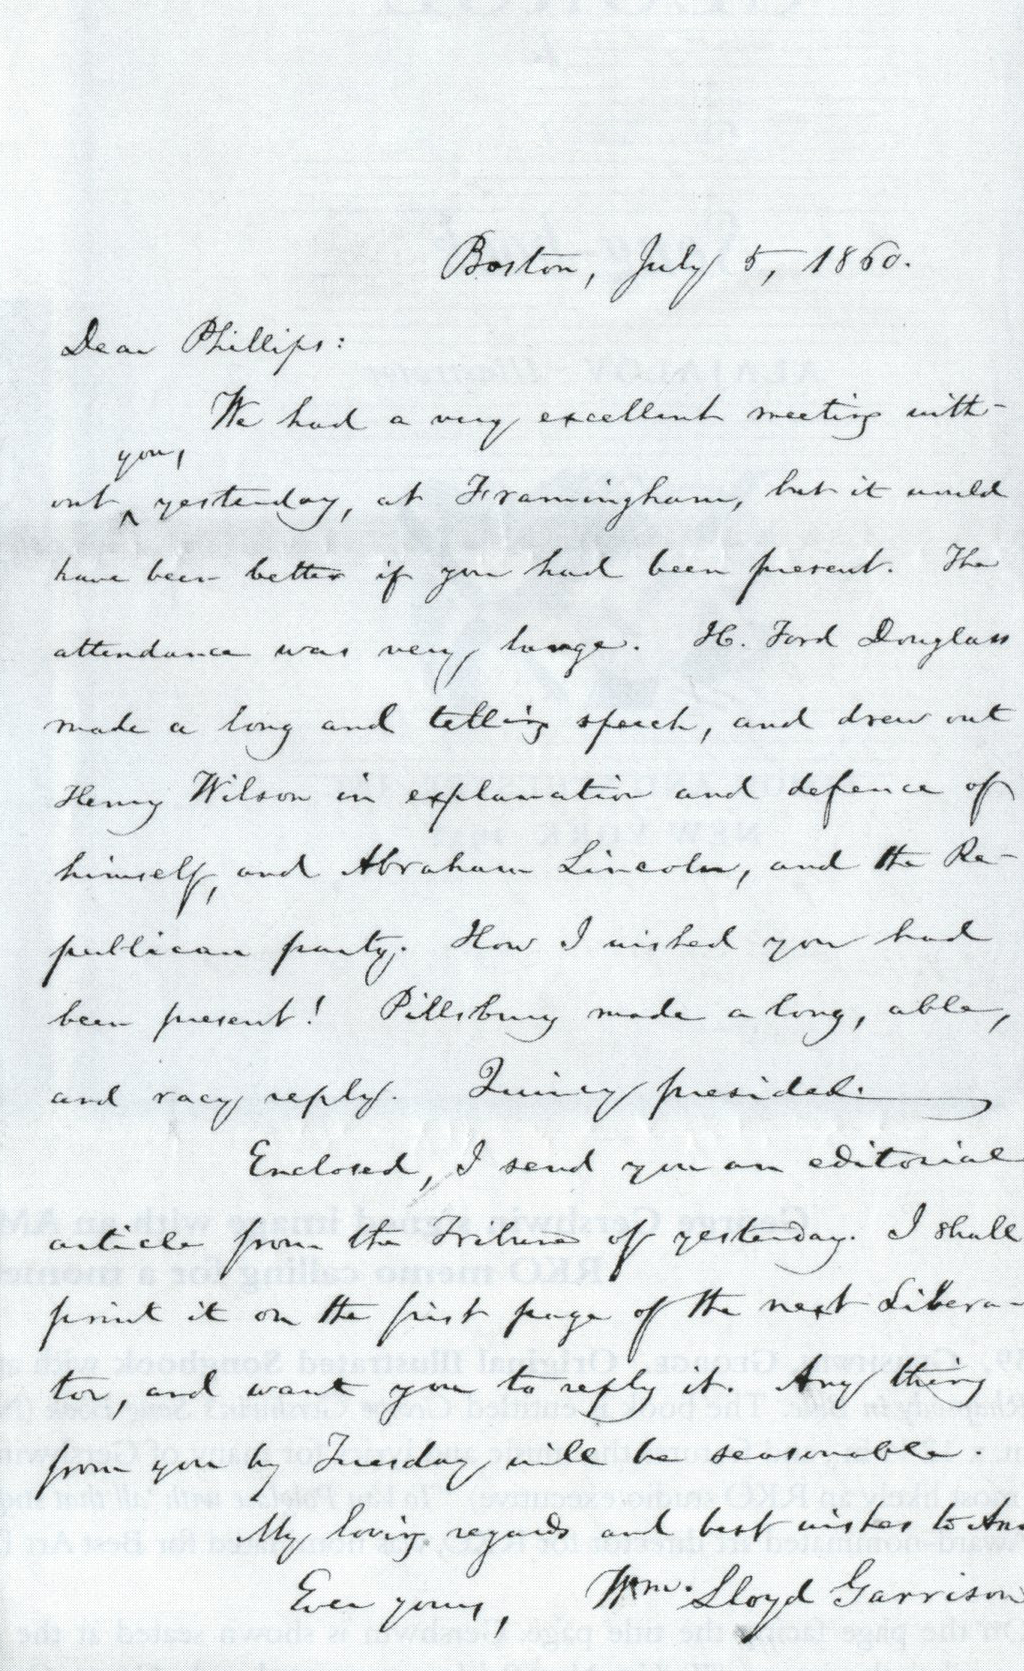 Boston, July 5, 1860.
Dear Phillips:
We had a very excellent meeting with-
you,
out ^ yesterday, at Framingham, but it would
have been better if you had been present. The
attendance was very large. H. Ford Douglass
made a long and telling speech, and drew out
Henry Wilson in explanation and defence of
himself, and Abraham Lincoln, and the Re-
publican party. How I wished you had
been present! Pillsbury made a long, able,
and racy reply. Quincy presided.
Enclosed, I send you an editorial
article from the Tribune of yesterday. I shall
print it on the first page of the next Libera-
tor, and want you to reply it. Any thing
from you by Tuesday will be seasonable.
My loving regards and best wishes to Ann
Ever yours, Wm. Lloyd Garrison